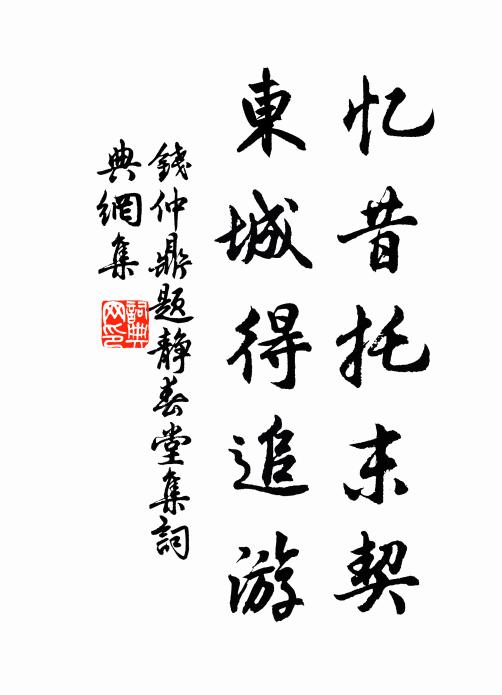 忆昔托末契
東城得追游
錢仲鼎题静春堂集詞
典網集
詞典
网印